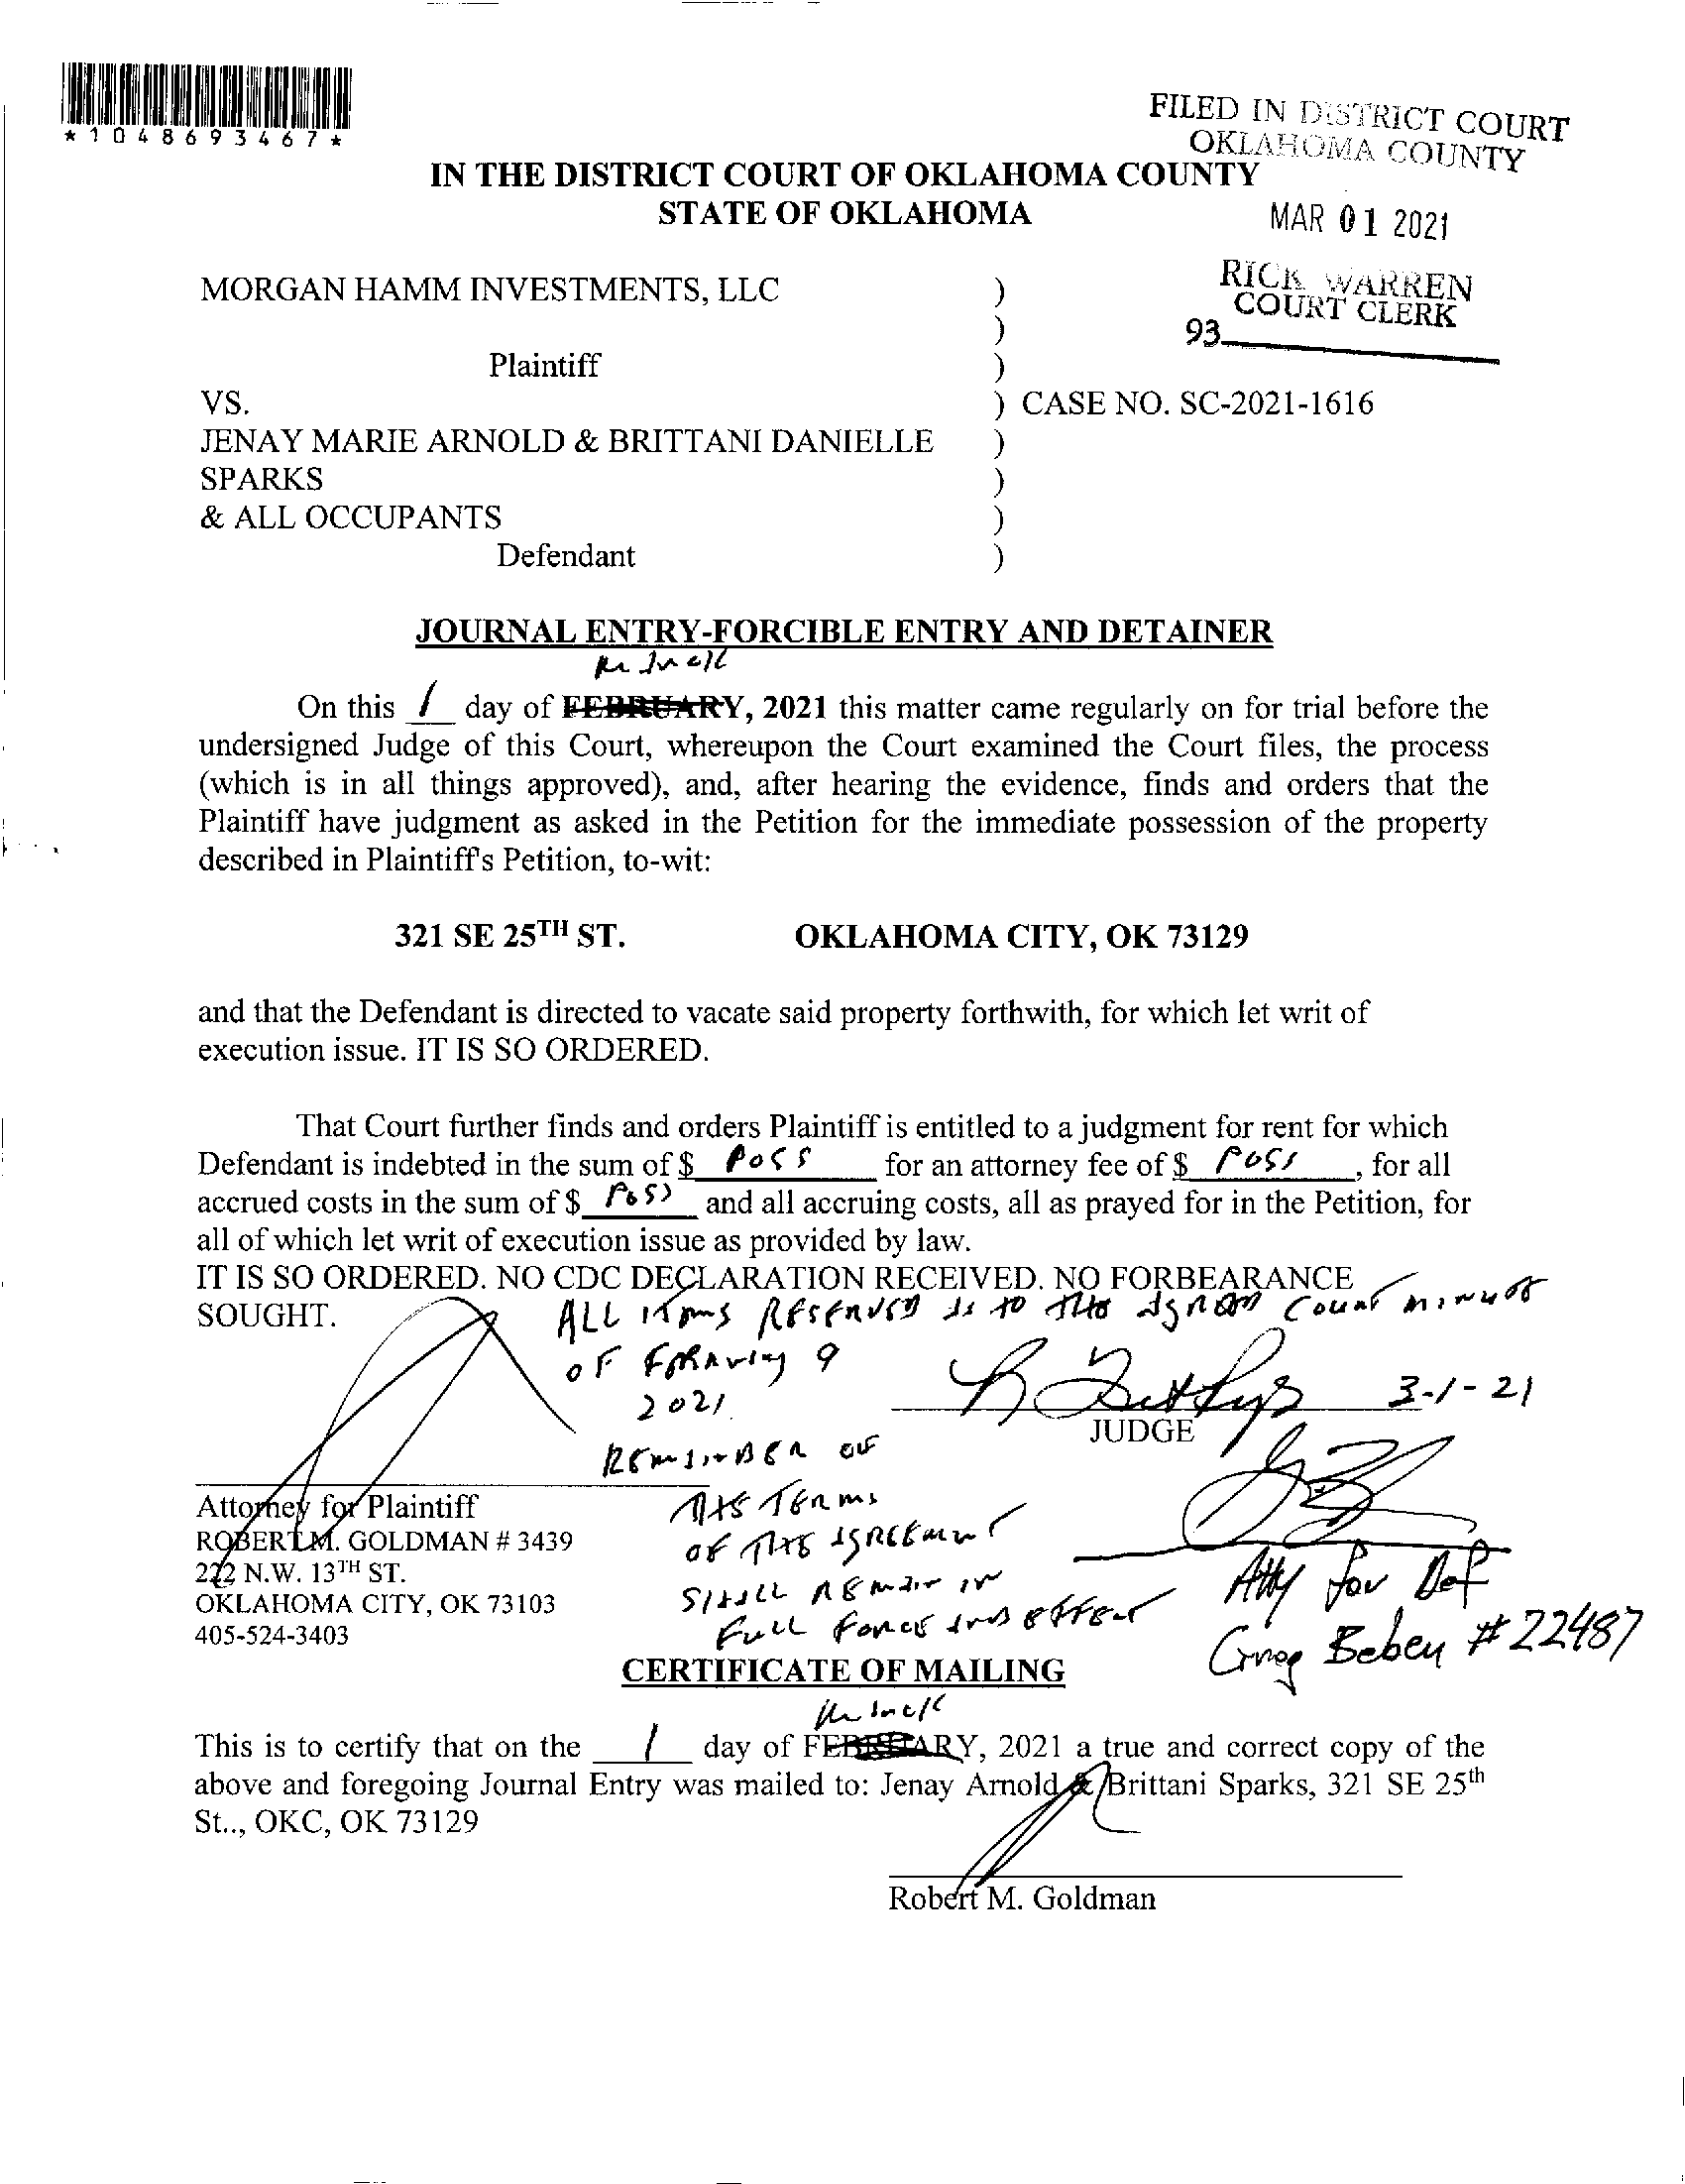 *1048693467*
FILED IN DISTRICT COURT
OKLAHOMA COUNTY
IN THE DISTRICT COURT OF OKLAHOMA COUNTY
STATE OF OKLAHOMA
MAR 01 2021
RICK WARREN
COURT CLERK
93
MORGAN HAMM INVESTMENTS, LLC )
)
Plaintiff )
VS. ) CASE NO. SC-2021-1616
JENAY MARIE ARNOLD & BRITTANI DANIELLE )
SPARKS )
& ALL OCCUPANTS )
Defendant )
JOURNAL ENTRY-FORCIBLE ENTRY AND DETAINER
On this 1 day of FEBRUARY, 2021 this matter came regularly on for trial before the
undersigned Judge of this Court, whereupon the Court examined the Court files, the process
(which is in all things approved), and, after hearing the evidence, finds and orders that the
Plaintiff have judgment as asked in the Petition for the immediate possession of the property
described in Plaintiff's Petition, to-wit:
321 SE 25TH ST. OKLAHOMA CITY, OK 73129
and that the Defendant is directed to vacate said property forthwith, for which let writ of
execution issue. IT IS SO ORDERED.
That Court further finds and orders Plaintiff is entitled to a judgment for rent for which
Defendant is indebted in the sum of $ POSS for an attorney fee of $ POSS, for all
accrued costs in the sum of $ POSS and all accruing costs, all as prayed for in the Petition, for
all of which let writ of execution issue as provided by law.
IT IS SO ORDERED. NO CDC DECLARATION RECEIVED. NO FORBEARANCE
SOUGHT.
ALL ITEMS RESERVED AS TO THE AGREED COURT MINUTE
OF FEBRUARY 9
2021
3-1-21
JUDGE
REMAINDER OF
THE TERMS
OF THE AGREEMENT
SHALL REMAIN IN
FULL FORCE AND EFFECT
Attorney for Plaintiff
ROBERT M. GOLDMAN # 3439
222 N.W. 13TH ST.
OKLAHOMA CITY, OK 73103
405-524-3403
Atty for Def
Greg Beben #22487
CERTIFICATE OF MAILING
This is to certify that on the 1 day of FEBRUARY, 2021 a true and correct copy of the
above and foregoing Journal Entry was mailed to: Jenay Arnold & Brittani Sparks, 321 SE 25th
St.., OKC, OK 73129
Robert M. Goldman